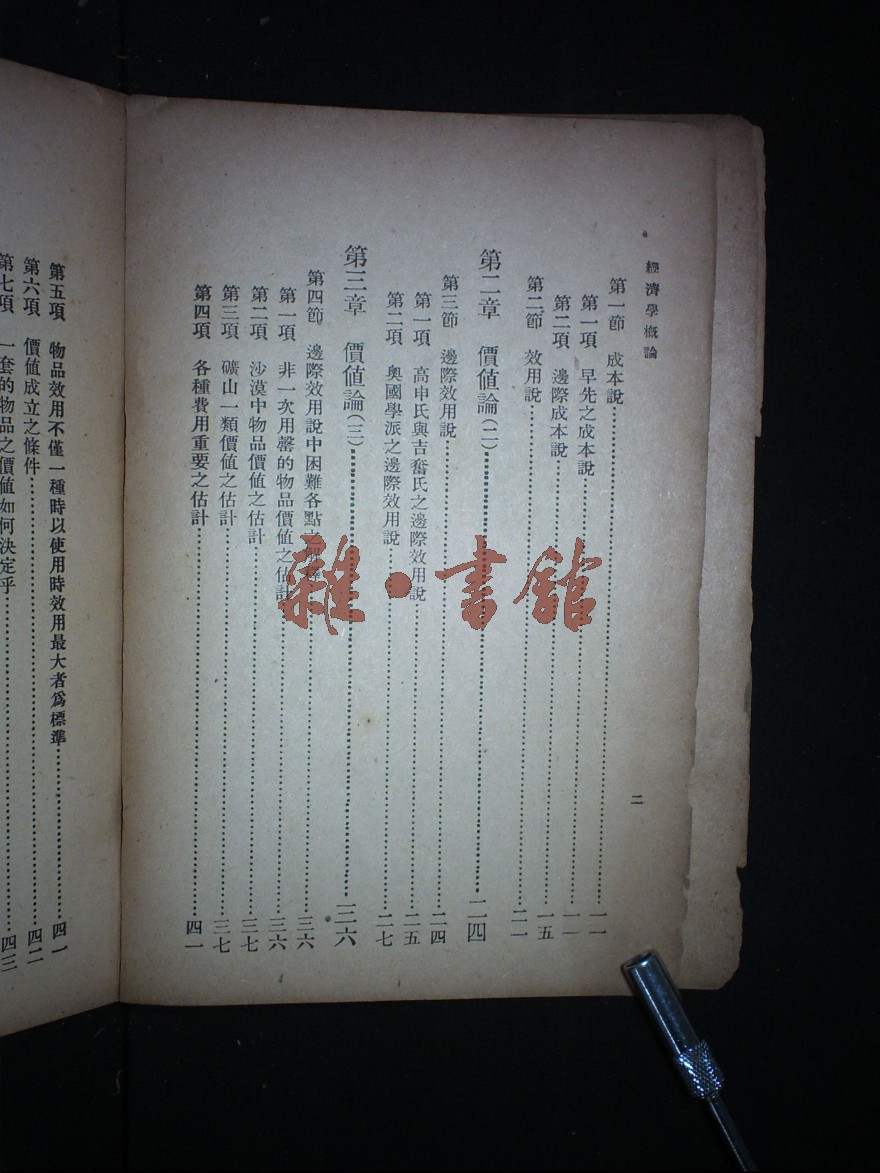 經濟學概論
二
第一節 成本說……一一
第一項 早先之成本說……一一
第二項 邊際成本說……一五
第二節 效用說……二一
第二章 價值論(二)……二四
第三節 邊際效用說……二四
第一項 高申氏與吉奮氏之邊際效用說……二五
第二項 奧國學派之邊際效用說……二七
第三章 價值論(三)……三六
第四節 邊際效用說中困難各點之解釋……三六
第一項 非一次用罄的物品價值之估計……三六
第二項 沙漠中物品價值之估計……三七
第三項 礦山一類價值之估計……三七
第四項 各種費用重要之估計……四一
第五項 物品效用不僅一種時以使用時效用最大者爲標準……四一
第六項 價值成立之條件……四二
第七項 一套的物品之價值如何決定乎……四三
雜·書館